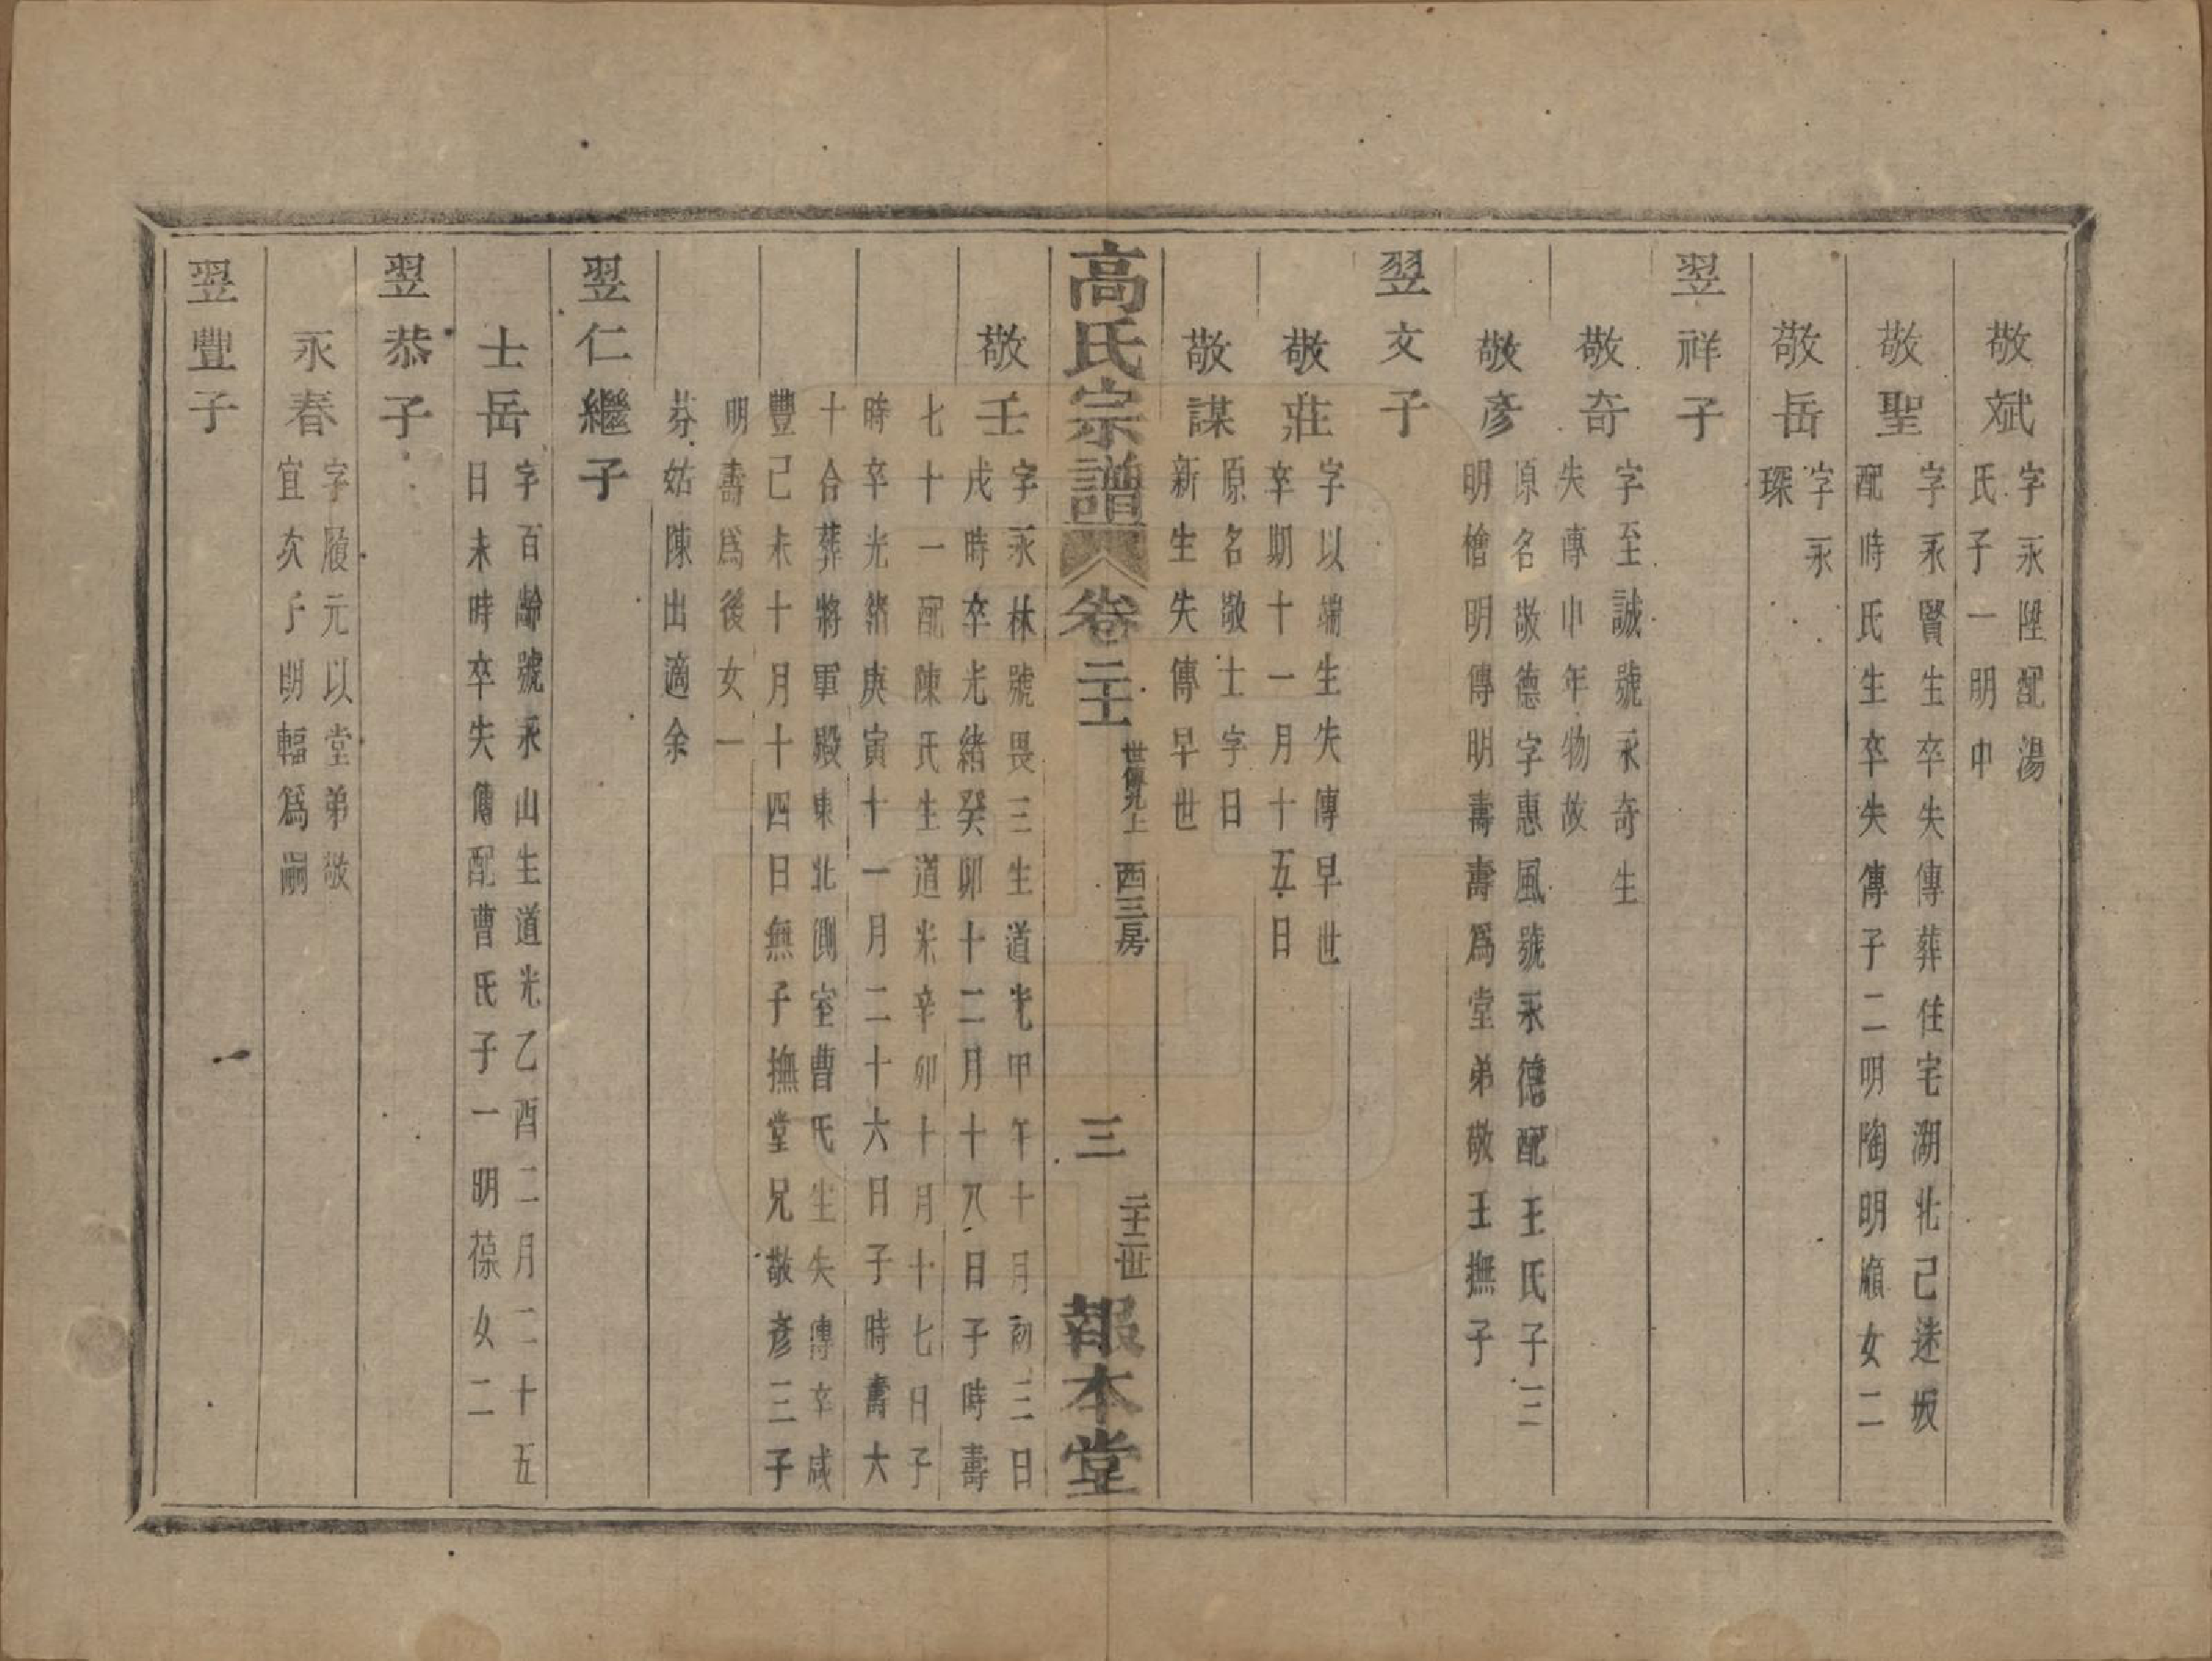 敬斌
字永陞配湯
氏子一明中
敬聖
字永賢生卒失傳葬住宅湖北己迷坂
配時氏生卒失傳子二明陶明順女二
敬岳
字永
琛
翌祥子
敬奇
字至誠號永奇生
失傳中年物故
敬彥
原名敬德字惠風號永德配王氏子三
明檜明傳明壽壽爲堂弟敬壬撫子
翌文子
敬莊
字以端生失傳早世
卒期十一月十五日
敬謀
原名敬士字日
新生失傳早世
高氏宗譜
卷二十一
世傳九上
西三房
三
二十二世
報本堂
敬壬
字永林號畏三生道光甲午十月初三日
戌時卒光緒癸卯十二月十八日子時壽
七十一配陳氏生道光辛卯十月十七日子
時卒光緒庚寅十一月二十六日子時壽六
十合葬將軍殿東北側室曹氏生失傳卒咸
豐己未十月十四日無子撫堂兄敬彥三子
明壽爲後女一
芬姑陳出適余
翌仁繼子
士岳
字百齡號永山生道光乙酉二月二十五
日未時卒失傳配曹氏子一明葆女二
翌恭子
永春
字履元以堂弟敬
宜次子明輻爲嗣
翌豐子